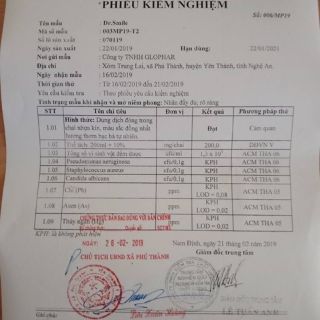 PHIẾU KIỂM NGHIỆM
Số: 006/MP19
Tên mẫu Dr.Smile
Mã số mẫu 003MP19-T2
Số lô sản xuất 070119
Ngày sản xuất 22/01/2019 Hạn dùng: 22/01/2021
Nơi gửi mẫu Công ty TNHH GLOPHAR
Xóm Trung Lai, xã Phú Thành, huyện Yên Thành, tỉnh Nghệ An.
Ngày nhận mẫu 16/02/2019
Thời gian thử Từ 16/02/2019 đến 21/02/2019
Yêu cầu kiểm tra Theo phiếu yêu cầu kiểm nghiệm
Tình trạng mẫu khi nhận và mở niêm phong: Nhãn đầy đủ, rõ ràng
STT Tên chỉ tiêu Đơn vị Kết quả Phương pháp thử
1.01 Hình thức: Dung dịch đóng trong chai nhựa kín, màu sắc đồng nhất hương thơm bạc hà tự nhiên. Đạt Cảm quan
1.02 Thể tích 200ml ± 10% mg/chai 200,0 DĐVN V
1.03 Tổng số vi sinh vật đếm được cfu/ml ACM THA 06
1.04 Pseudomonas aeruginosa cfu/0,1g KPH ACM THA 06
1.05 Staphylococcus aureus cfu/0,1g KPH ACM THA 06
1.06 Candida albicans cfu/0,1g KPH ACM THA 06
1.07 Chì (Pb) ppm KPH LOD = 0,08 ACM THA 05
1.08 Asen (As) ppm KPH LOD = 0,02 ACM THA 05
1.09 Thủy ngân (Hg) KPH LOD = 0,02 ACM THA 05
KPH: là không phát hiện
CHỨNG THỰC BẢN SAO ĐÚNG VỚI BẢN CHÍNH
NGÀY 26-02-2019
CHỦ TỊCH UBND XÃ PHÚ THÀNH
Nam Định, ngày 21 tháng 02 năm 2019
Giám đốc trung tâm
LÊ TUẤN ANH
Ghi chú: